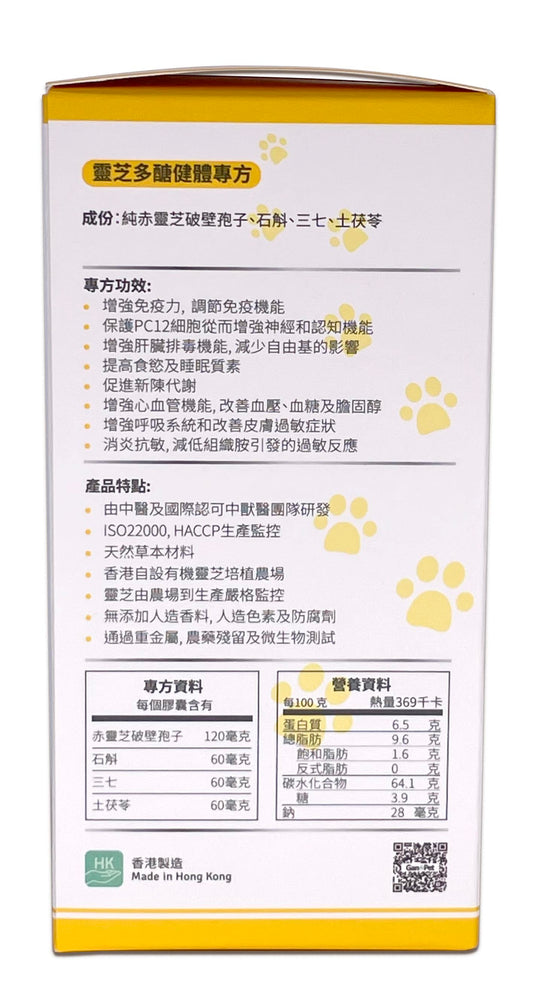 靈芝多醣健體專方
成份:純赤靈芝破壁孢子、石斛、三七、土茯苓
專方功效:
• 增強免疫力, 調節免疫機能
• 保護PC12細胞從而增強神經和認知機能
• 增強肝臟排毒機能, 減少自由基的影響
• 提高食慾及睡眠質素
• 促進新陳代謝
• 增強心血管機能, 改善血壓、血糖及膽固醇
• 增強呼吸系統和改善皮膚過敏症狀
• 消炎抗敏, 減低組織胺引發的過敏反應
產品特點:
• 由中醫及國際認可中獸醫團隊研發
• ISO22000, HACCP生產監控
• 天然草本材料
• 香港自設有機靈芝培植農場
• 靈芝由農場到生產嚴格監控
• 無添加人造香料, 人造色素及防腐劑
• 通過重金屬, 農藥殘留及微生物測試
專方資料
每個膠囊含有
赤靈芝破壁孢子 120毫克
石斛 60毫克
三七 60毫克
土茯苓 60毫克
營養資料
每100 克 熱量369千卡
蛋白質 6.5 克
總脂肪 9.6 克
飽和脂肪 1.6 克
反式脂肪 0 克
碳水化合物 64.1 克
糖 3.9 克
鈉 28 毫克
HK
香港製造
Made in Hong Kong
Gan Pet